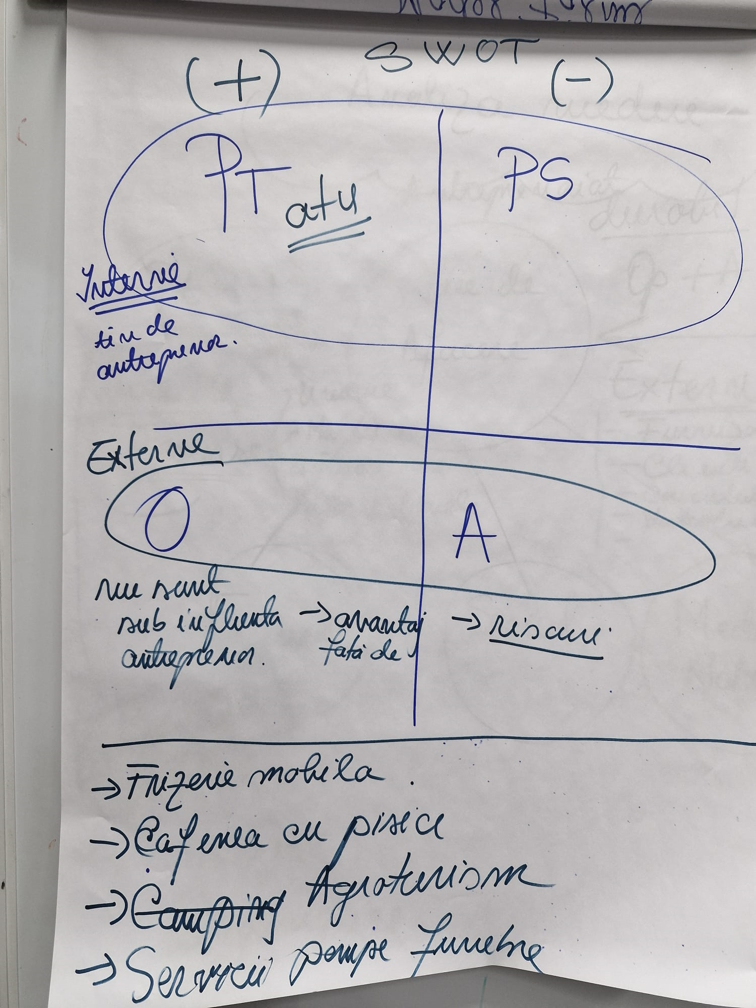 SWOT
(+) (-)
PT PS
atu
Interne
tin de
antreprenor.
Externe
O A
nu sunt
sub influenta → avantaj → riscuri.
antreprenor. fata de
→ Frizerie mobila.
→ Cafenea cu pisici
→ Camping Agroturism
→ Servicii pompe funebre